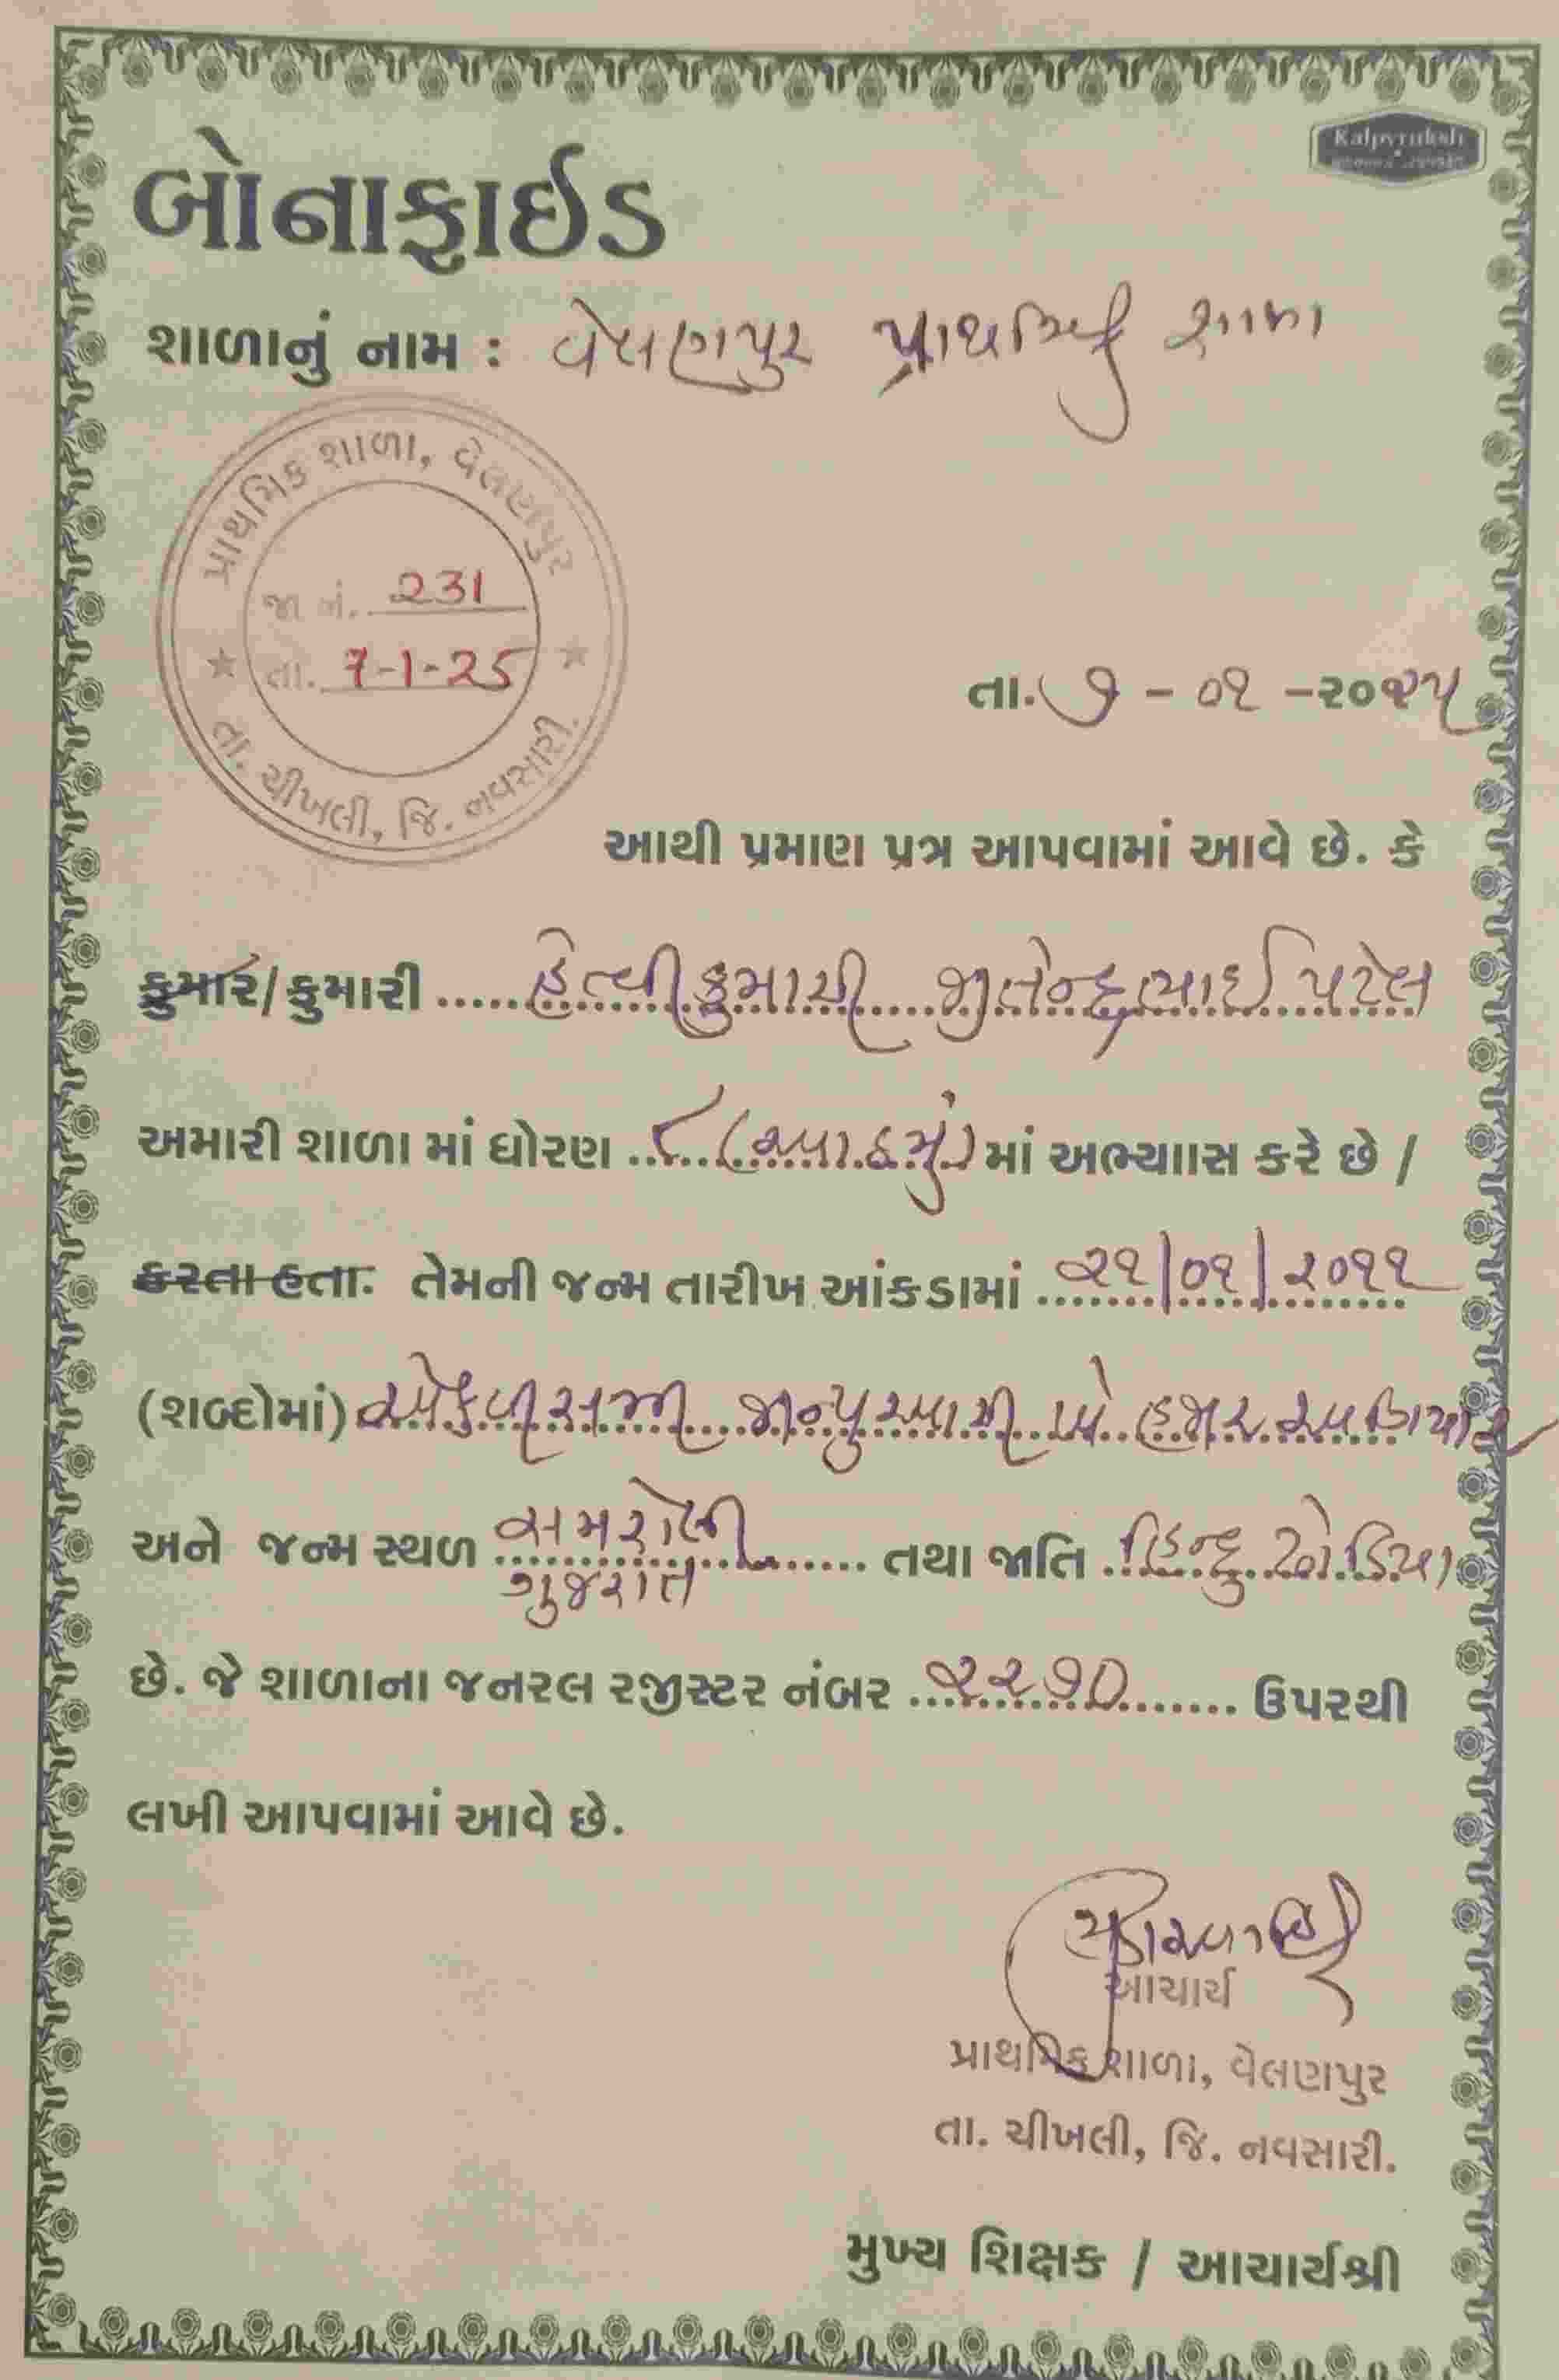 Kalpvruksh
બોનાફાઈડ
શાળાનું નામ : વેલણપુર પ્રાથમિક શાળા
પ્રાથમિક શાળા, વેલણપુર
જા નં. 231
તા. 7-1-25
તા. ચીખલી, જિ. નવસારી.
તા. ૭ - ૦૧ - ૨૦૨૫
આથી પ્રમાણ પત્ર આપવામાં આવે છે. કે
કુમાર/કુમારી હેત્વીકુમારી જીતેન્દ્રભાઈ પટેલ
અમારી શાળા માં ધોરણ ૮ (આઠમું) માં અભ્યાાસ કરે છે /
કરતા હતા. તેમની જન્મ તારીખ આંકડામાં ૨૧/૦૧/૨૦૧૧
(શબ્દોમાં) એકવીસમી જાન્યુઆરી બે હજાર અગિયાર
અને જન્મ સ્થળ સમરોલી ગુજરાત તથા જાતિ હિન્દુ ધોડિયા
છે. જે શાળાના જનરલ રજીસ્ટર નંબર ૨૨૭૦ ઉપરથી
લખી આપવામાં આવે છે.
આચાર્ય
પ્રાથમિક શાળા, વેલણપુર
તા. ચીખલી, જિ. નવસારી.
મુખ્ય શિક્ષક / આચાર્યશ્રી